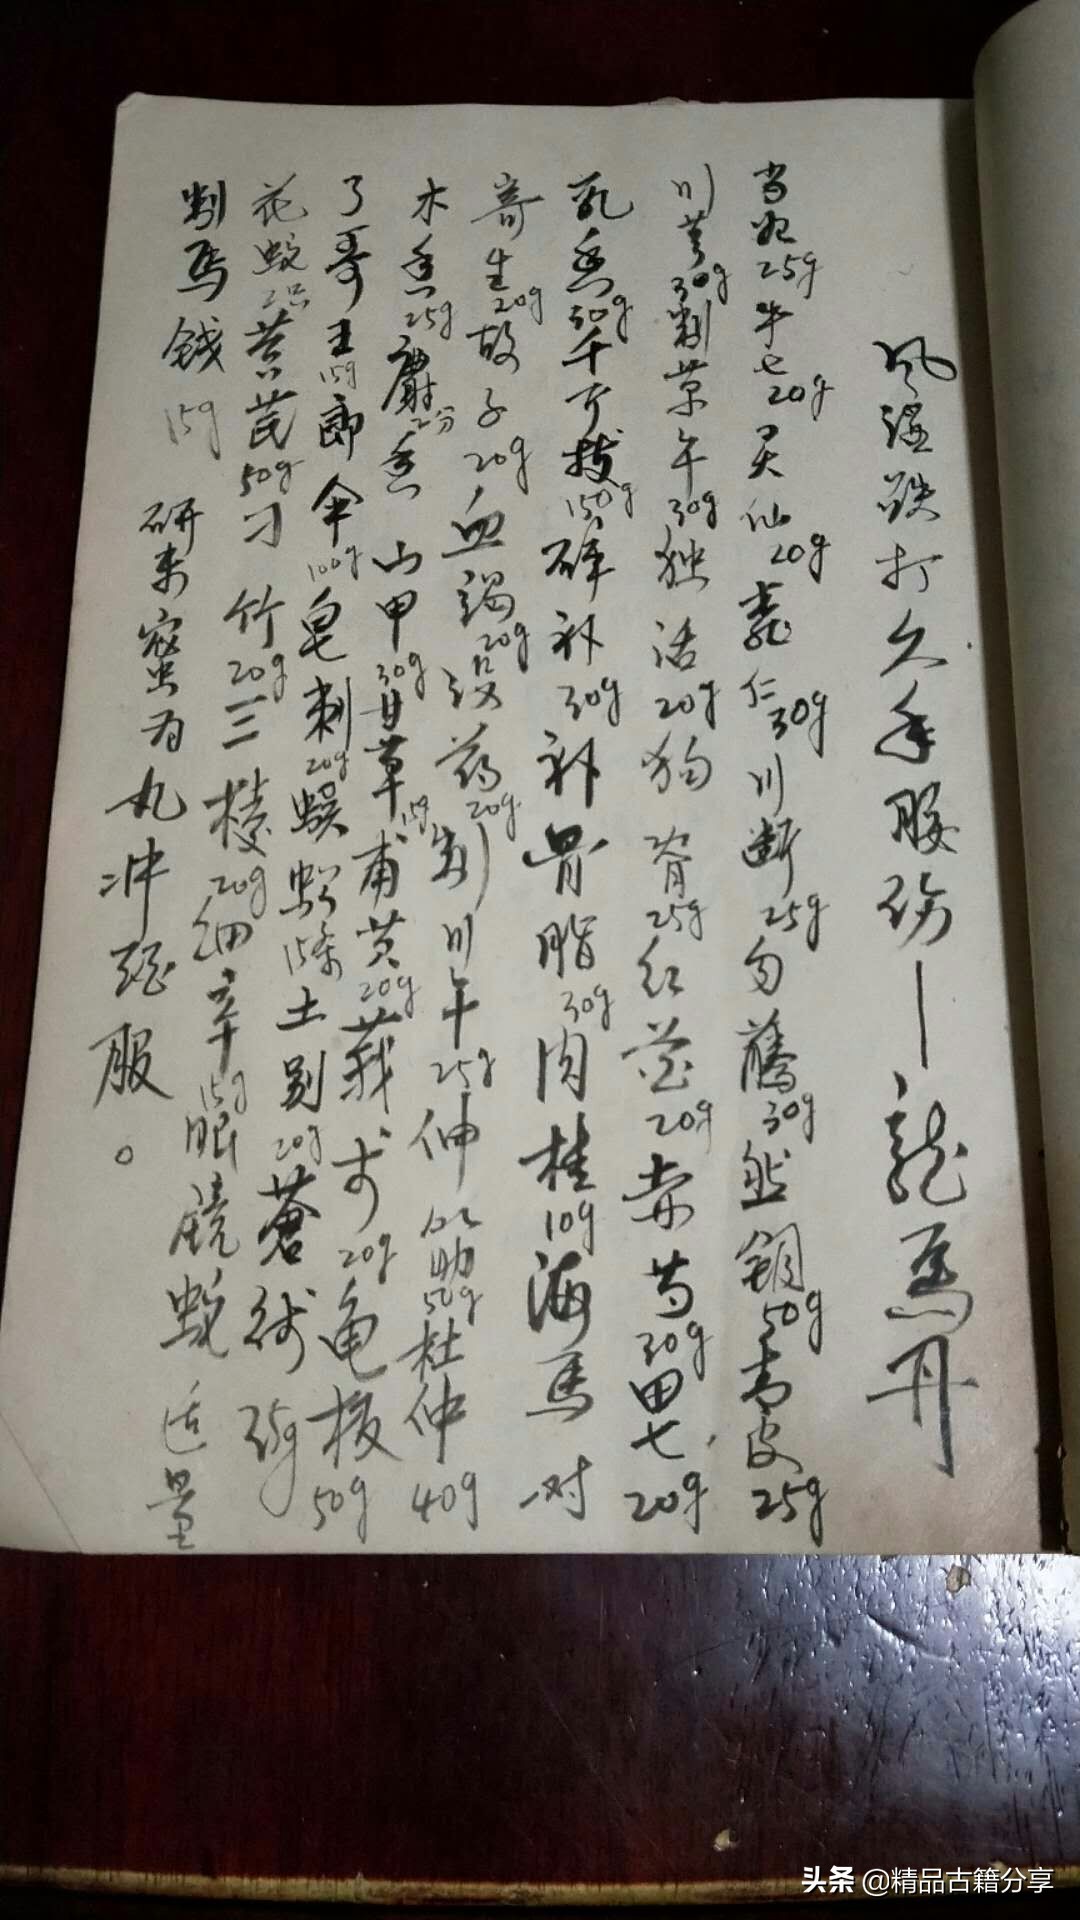 风湿跌打久年腰伤——龙马丹
当归25g牛七20g灵仙20g桃仁30g川断25g勾藤30g然铜50g青皮25g
川芎30g制草乌30g独活20g狗脊25g红花20g赤芍30g田七20g
乳香30g千斤拔150g碎补30g补骨脂30g肉桂10g海马一对
寄生20g故子20g血竭20g没药20g制川午25g伸筋50g杜仲40g
木香25g麝香2分山甲30g甘草15g甫黄20g莪术20g龟板50g
了哥王15g郎伞100g皂刺20g蜈蚣15条土别20g苍术25g
花蛟2只黄芪50g刁竹20g三棱20g细辛15g眼镜蛇适量
制馬钱15g
研末蜜为丸冲酒服。
头条 @精品古籍分享